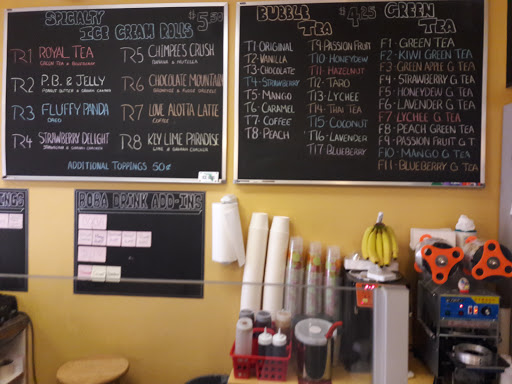 SPECIALTY
ICE CREAM ROLLS $5.50
R1 ROYAL TEA
GREEN TEA & BLUEBERRY
R2 P.B. & JELLY
PEANUT BUTTER & GRAHAM CRACKER
R3 FLUFFY PANDA
OREO
R4 STRAWBERRY DELIGHT
STRAWBERRY & GRAHAM CRACKER
R5 CHIMPEE'S CRUSH
BANANA & NUTELLA
R6 CHOCOLATE MOUNTAIN
R7 LOVE ALOTTA LATTE
COFFEE
R8 KEY LIME PARADISE
LIME & GRAHAM CRACKER
ADDITIONAL TOPPINGS 50¢
BUBBLE TEA $4.25
T1 ORIGINAL
T2 VANILLA
T3 CHOCOLATE
T4 STRAWBERRY
T5 MANGO
T6 CARAMEL
T7 COFFEE
T8 PEACH
T9 PASSION FRUIT
T10 HONEYDEW
T11 HAZELNUT
T12 TARO
T13 LYCHEE
T14 THAI TEA
T15 COCONUT
T16 LAVENDER
T17 BLUEBERRY
GREEN TEA
F1 GREEN TEA
F2 KIWI GREEN TEA
F3 GREEN APPLE G TEA
F4 STRAWBERRY G TEA
F5 HONEYDEW G TEA
F6 LAVENDER G TEA
F7 LYCHEE G TEA
F8 PEACH GREEN TEA
F9 PASSION FRUIT G T
F10 MANGO G TEA
F11 BLUEBERRY G TEA
NGS
BOBA DRINK ADD-INS